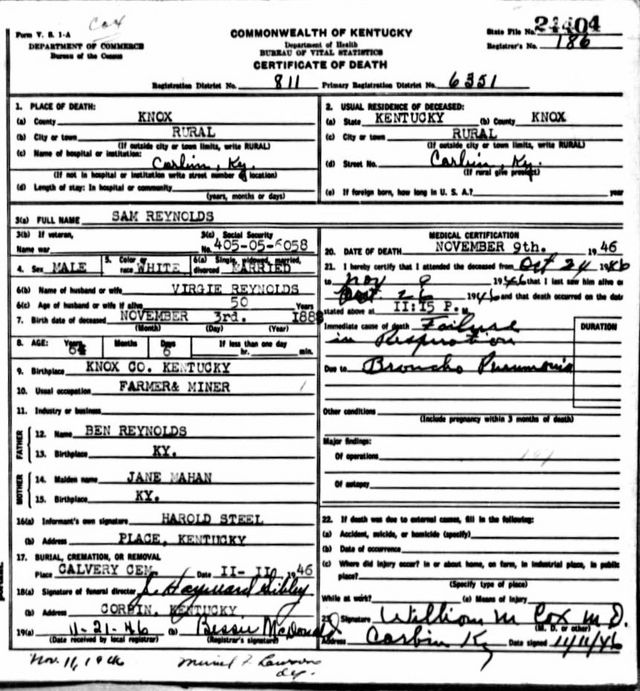 Cox
Form V. S. 1-A
DEPARTMENT OF COMMERCE
Bureau of the Census
COMMONWEALTH OF KENTUCKY
Department of Health
BUREAU OF VITAL STATISTICS
CERTIFICATE OF DEATH
State File No. 24404
Registrar's No. 186
Registration District No. 811 Primary Registration District No. 6351
1. PLACE OF DEATH:
(a) County KNOX
(b) City or town RURAL
(If outside city or town limits, write RURAL)
(c) Name of hospital or institution:
Corbin, Ky.
(If not in hospital or institution write street number or location)
(d) Length of stay: In hospital or community
(years, months or days)
2. USUAL RESIDENCE OF DECEASED:
(a) State KENTUCKY (b) County KNOX
(c) City or town RURAL
(If outside city or town limits, write RURAL)
(d) Street No. Corbin, Ky.
(If rural give precinct)
(e) If foreign born, how long in U. S. A.? years
3(a) FULL NAME SAM REYNOLDS
3(b) If veteran,
Name war
3(c) Social Security
No. 405-05-6058
4. Sex MALE
5. Color or
race WHITE
6(a) Single, widowed, married,
divorced MARRIED
6(b) Name of husband or wife VIRGIE REYNOLDS
6(c) Age of husband or wife if alive 50 Years
7. Birth date of deceased NOVEMBER 3rd. 1882
(Month) (Day) (Year)
8. AGE: Years 64 Months Days 6 If less than one day
hr. min.
9. Birthplace KNOX CO. KENTUCKY
10. Usual occupation FARMER& MINER
11. Industry or business
FATHER
12. Name BEN REYNOLDS
13. Birthplace KY.
MOTHER
14. Maiden name JANE MAHAN
15. Birthplace KY.
16(a) Informant's own signature HAROLD STEEL
(b) Address PLACE, KENTUCKY
17. BURIAL, CREMATION, OR REMOVAL
Place CALVERY CEM. Date 11- 11 1946
18(a) Signature of funeral director J. Hayward Sibley
(b) Address CORBIN, KENTUCKY
19(a) 11-21-46 (b) Bessie McDonald
(Date received by local registrar) (Registrar's signature)
MEDICAL CERTIFICATION
20. DATE OF DEATH NOVEMBER 9th. 1946
21. I hereby certify that I attended the deceased from Oct 24 1946
to Nov 9 1946 that I last saw him alive on
Oct 26 1946 and that death occurred on the date
stated above at 11:15 P.m.
Immediate cause of death Failure
in Respiration
Due to Broncho Pneumonia
DURATION
Other conditions
(Include pregnancy within 3 months of death)
Major findings:
Of operations
Of autopsy
22. If death was due to external causes, fill in the following:
(a) Accident, suicide, or homicide (specify)
(b) Date of occurrence
(c) Where did injury occur? In or about home, on farm, in industrial place, in public
place?
(Specify type of place)
While at work? (e) Means of Injury
23. Signature William M Cox M.D.
(M. D. or other)
Address Corbin Ky Date signed 11/11/46
Nov. 11, 1946